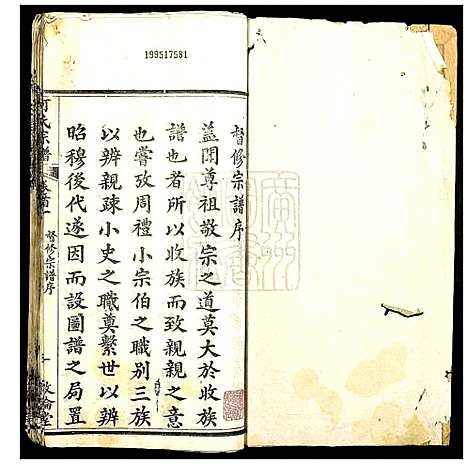 199517581
督修宗譜序
蓋聞尊祖敬宗之道莫大於收族
譜也者所以收族而致親親之意
也嘗攷周禮小宗伯之職別三族
以辨親疎小史之職奠繫世以辨
昭穆後代遂因而設圖譜之局置
何氏宗譜
卷首一
督修宗譜序
一
敦倫堂